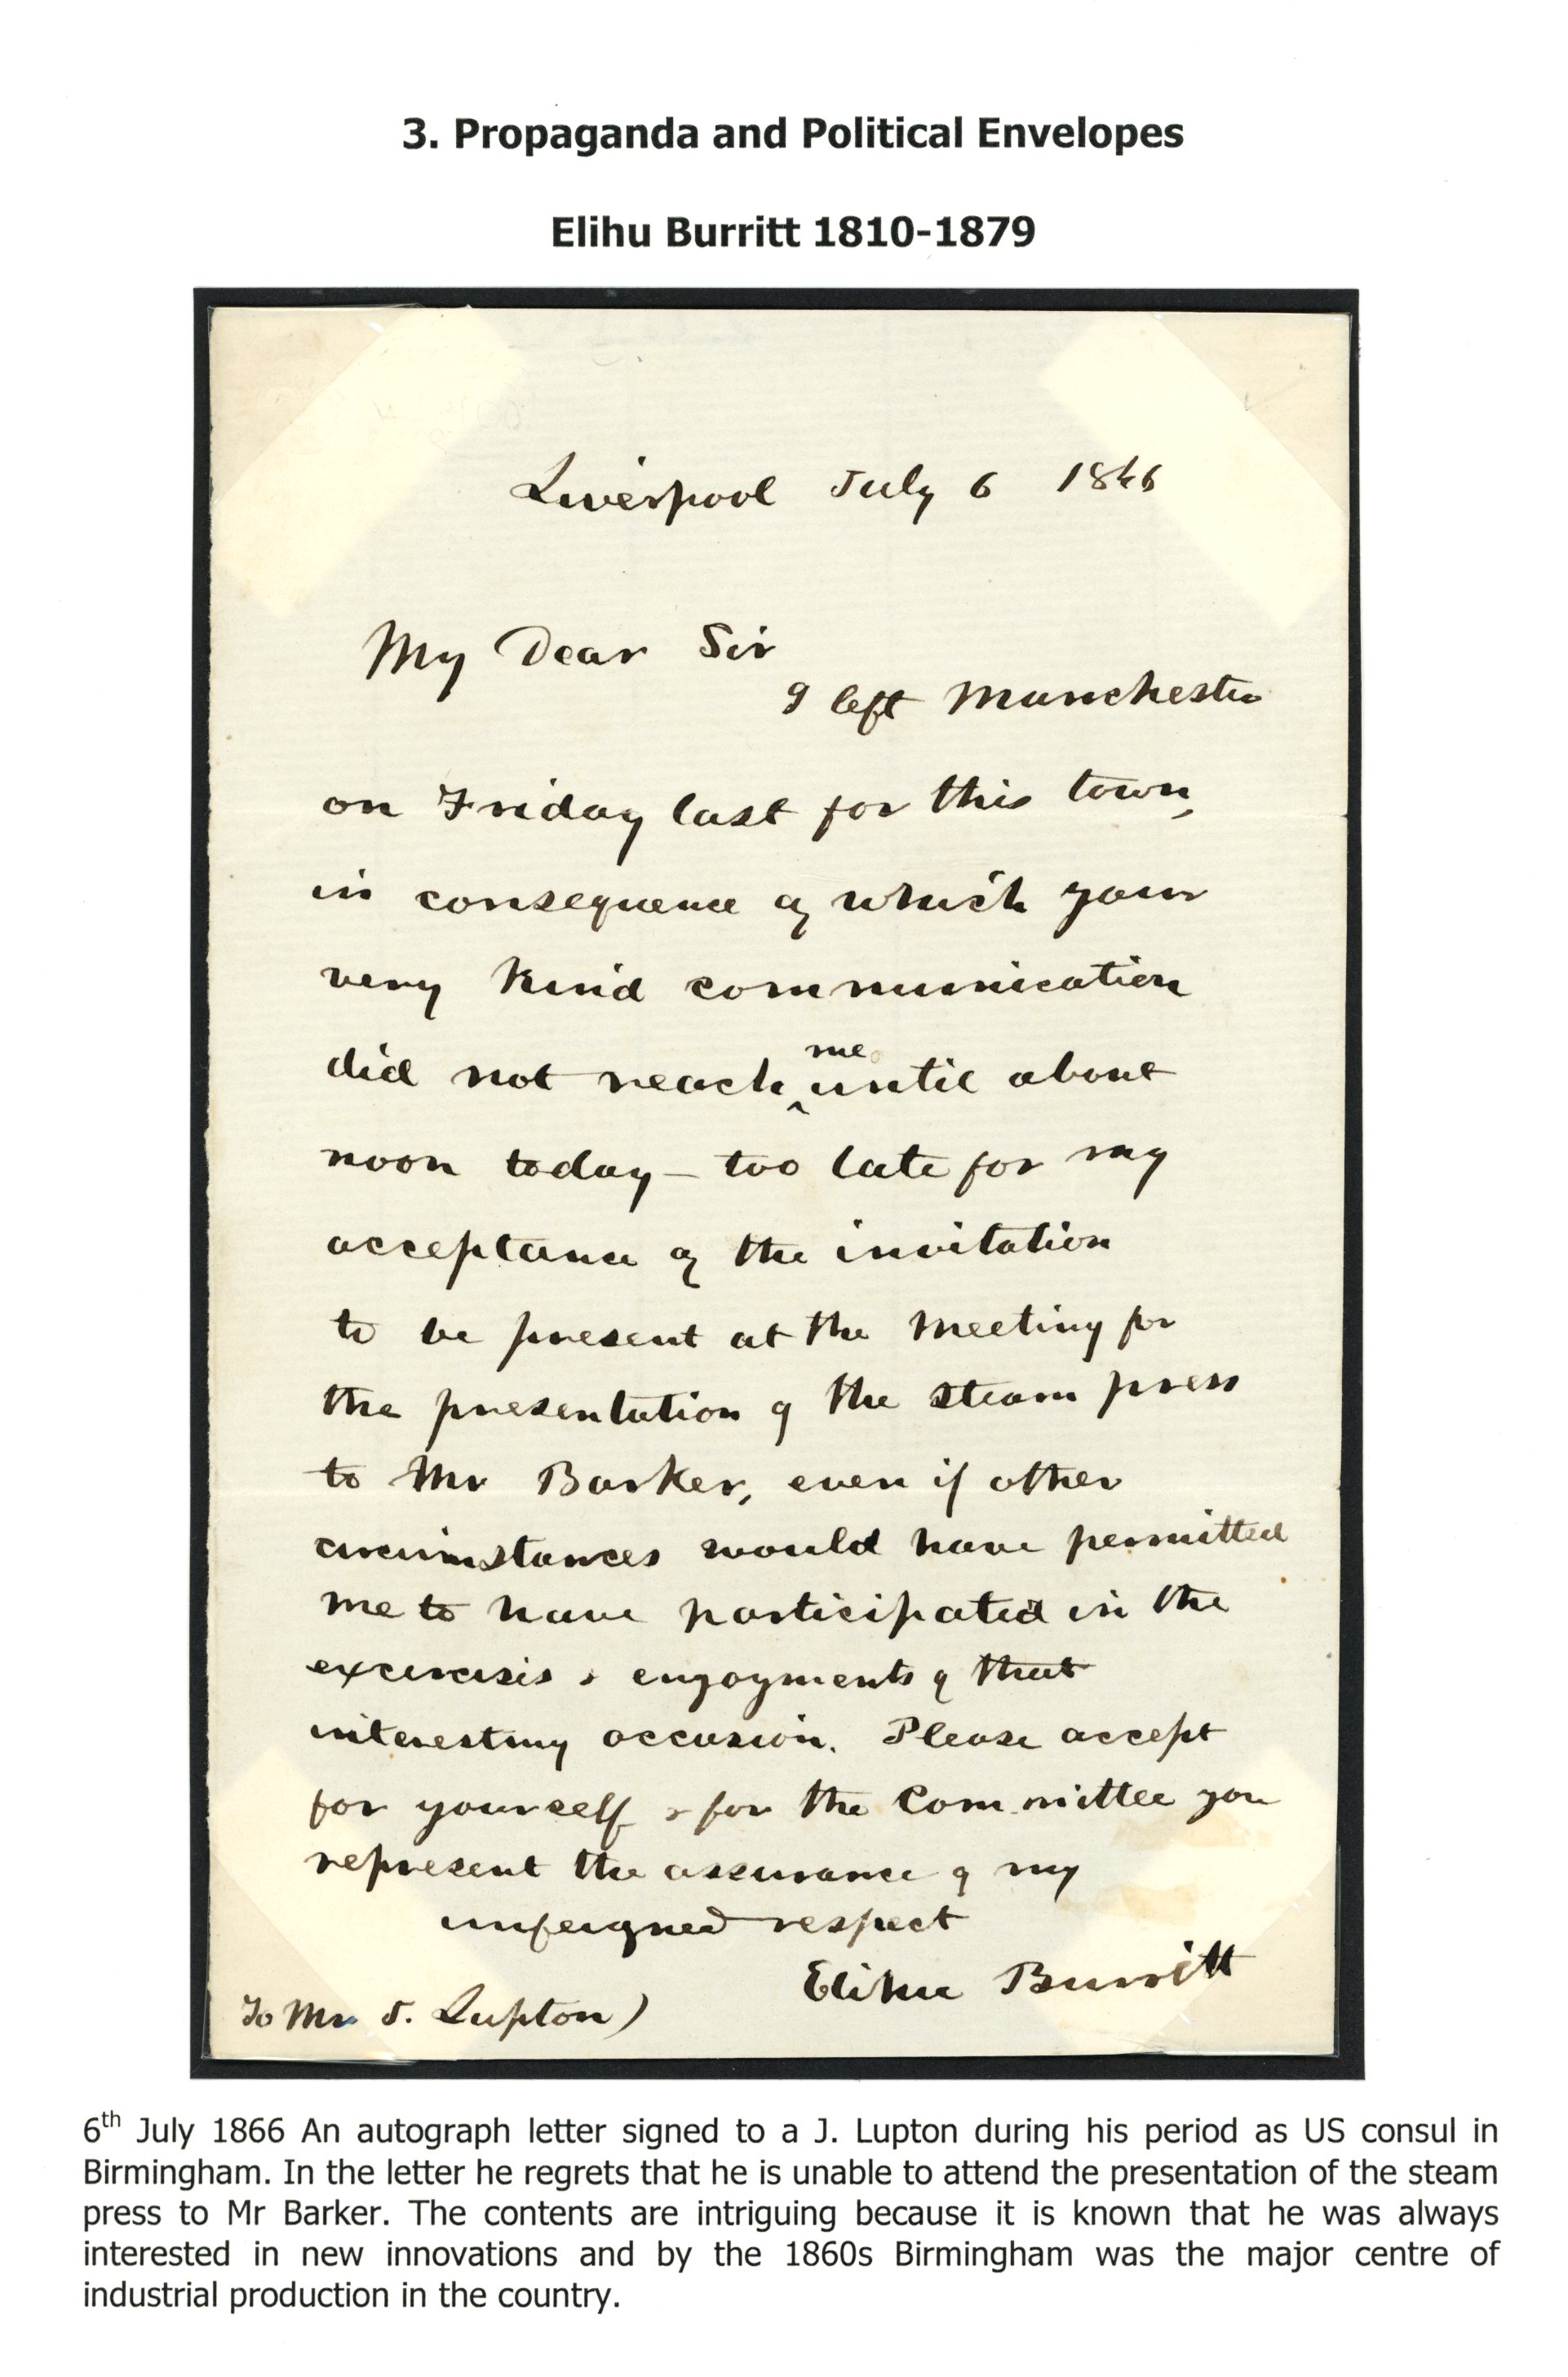 3. Propaganda and Political Envelopes
Elihu Burritt 1810-1879
Liverpool July 6 1846
My Dear Sir
I left Manchester
on Friday last for this town,
in consequence of which your
very kind communication
did not reach me until about
noon today – too late for my
acceptance of the invitation
to be present at the meeting for
the presentation of the steam press
to Mr Barker, even if other
circumstances would have permitted
me to have participated in the
excercisis & enjoyments of that
interesting occasion. Please accept
for yourself & for the Committee you
represent the assurance of my
unfeigned respect
Elihu Burritt
To Mr J. Lupton)
6th July 1866 An autograph letter signed to a J. Lupton during his period as US consul in
Birmingham. In the letter he regrets that he is unable to attend the presentation of the steam
press to Mr Barker. The contents are intriguing because it is known that he was always
interested in new innovations and by the 1860s Birmingham was the major centre of
industrial production in the country.